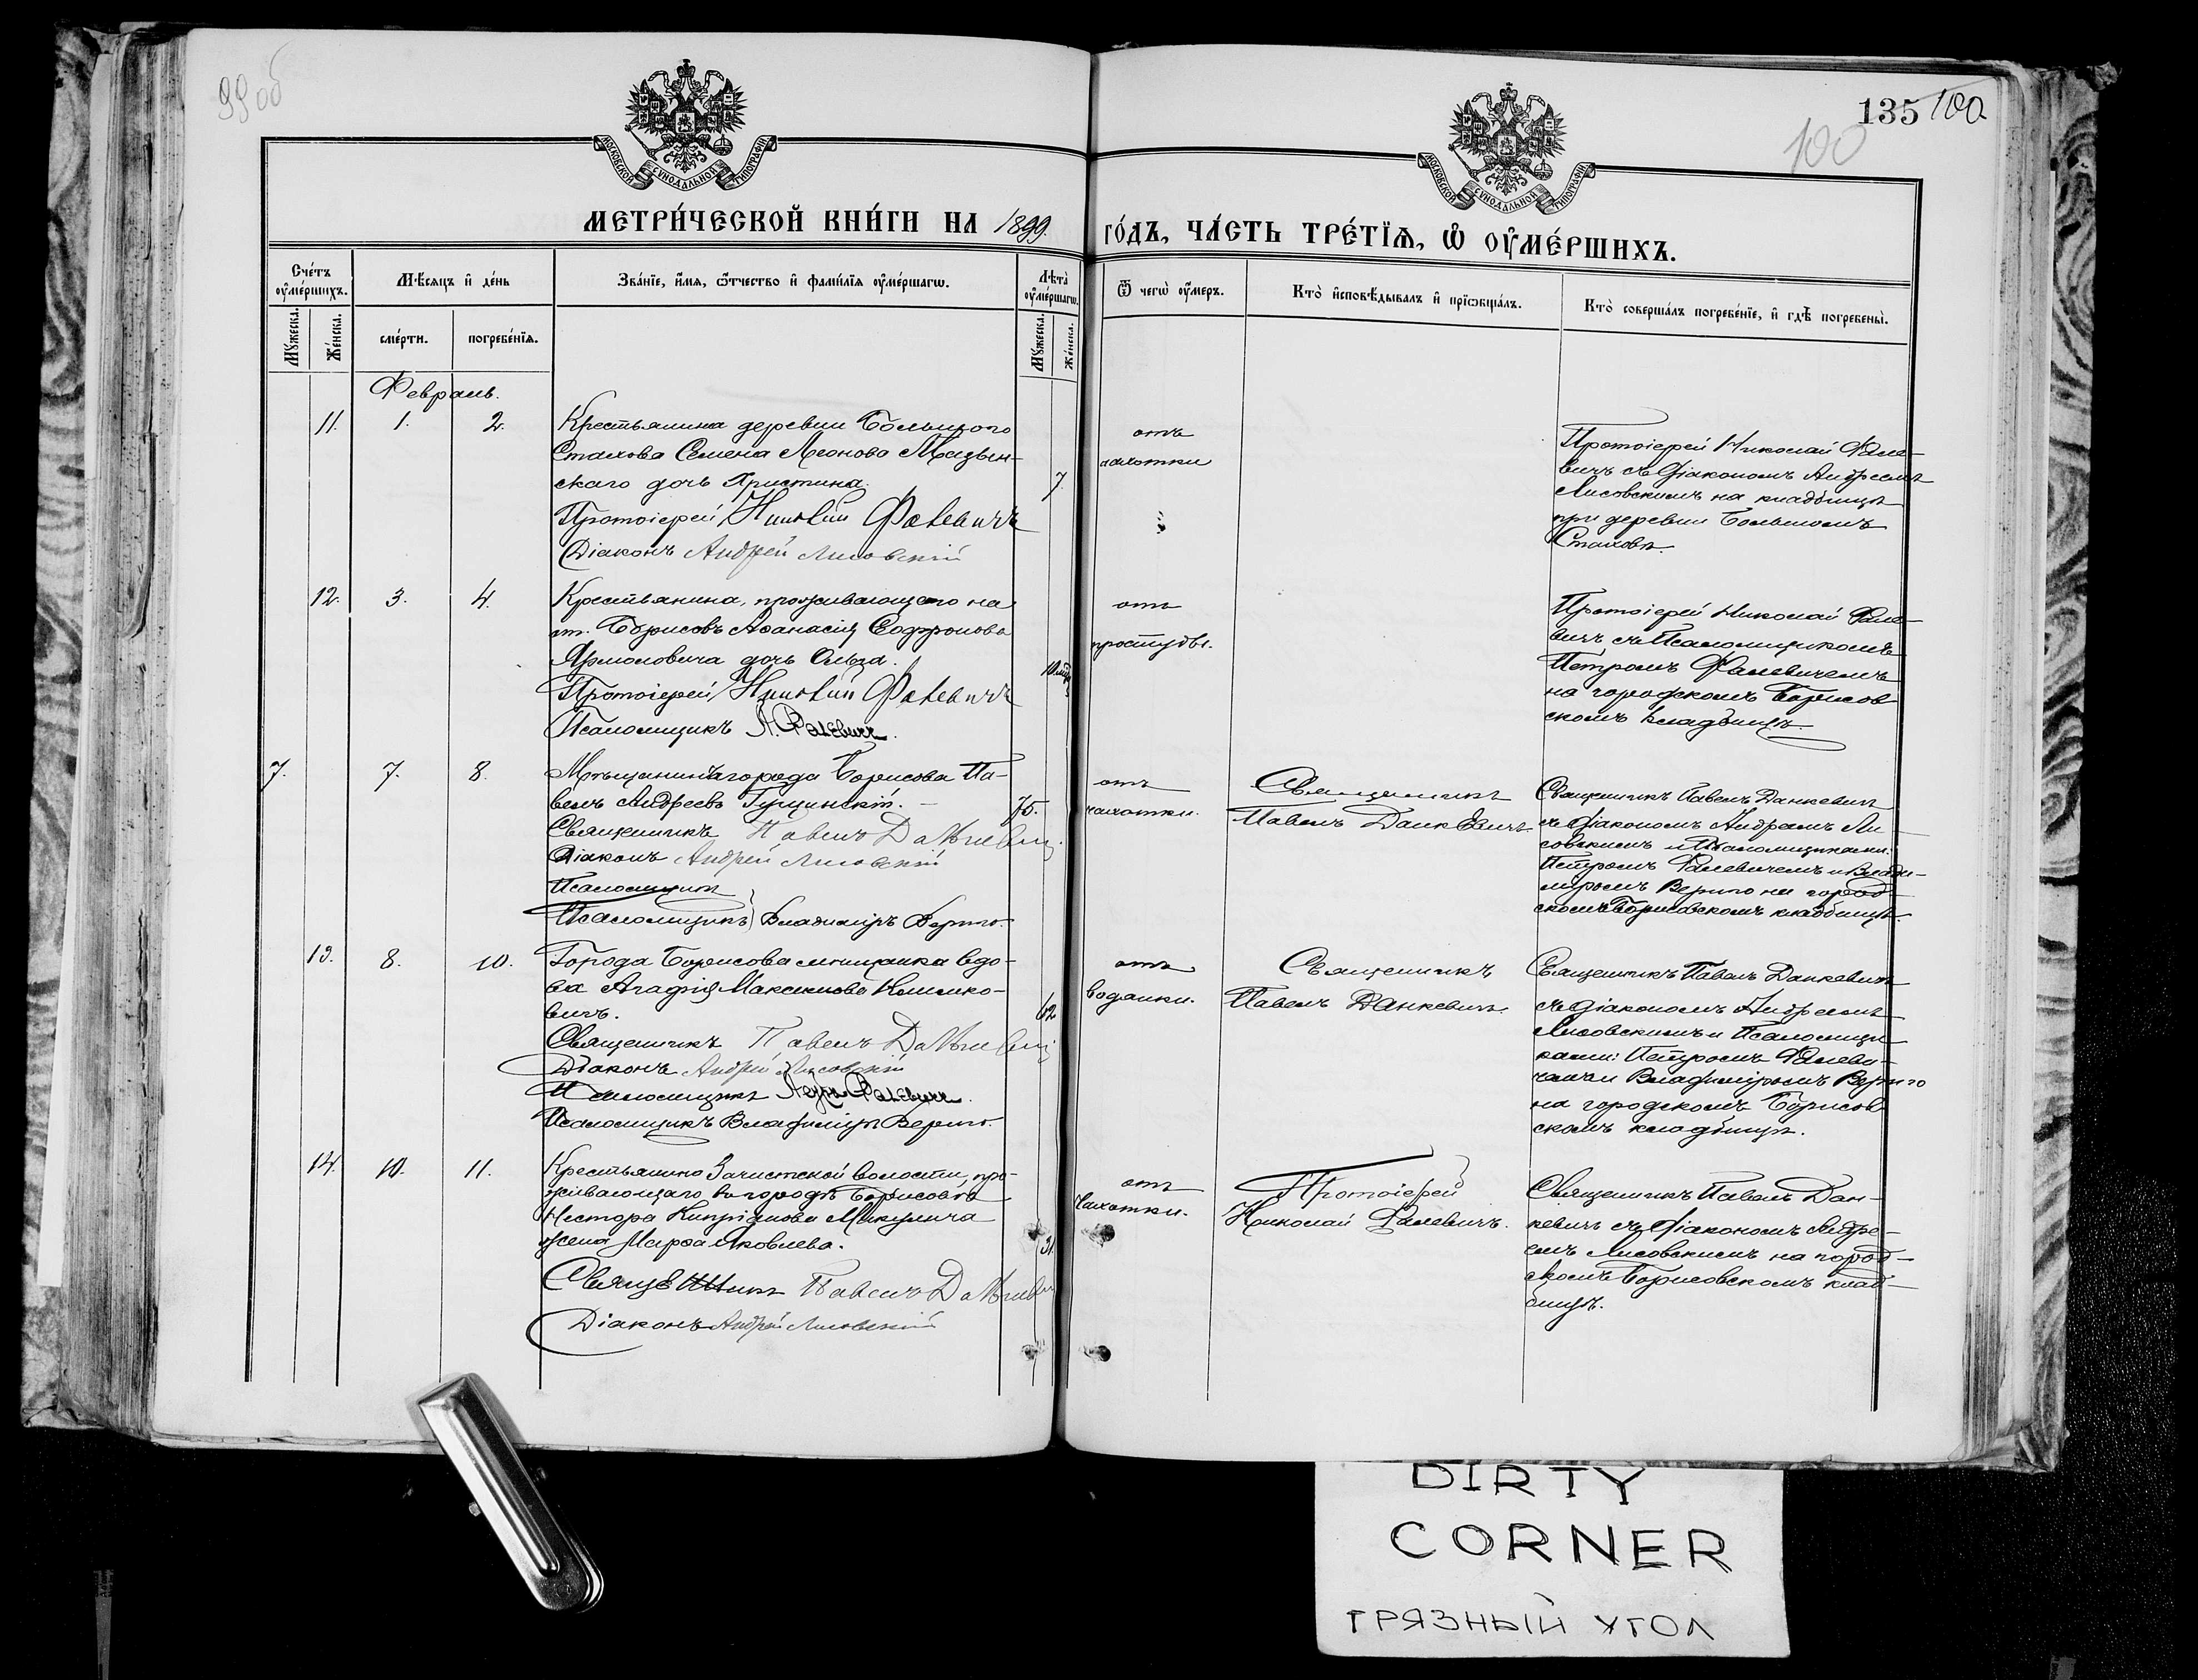 99об
135 100
100
МОСКОВСКОЙ СѴНОДАЛЬНОЙ ТИПОГРАФІИ
МОСКОВСКОЙ СѴНОДАЛЬНОЙ ТИПОГРАФІИ
МЕТРИ́ЧЕСКОЙ КНИ́ГИ НА 1899.
ГО́ДЪ, ЧА́СТЬ ТРЕ́ТЇѦ, Ѡ҆ ОУ҆МЕ́РШИХЪ.
Сче́тъ оу҆ме́ршихъ.
Мѣ́сяцъ и҆ де́нь
Зва́нїе, и҆́мя, ѻ҆́тчество и҆ фами́лїя оу҆ме́ршагѡ.
Лѣта̀ оу҆ме́ршагѡ.
Ѿ чегѡ̀ оу҆́меръ.
Кто̀ и҆сповѣ́дывалъ и҆ прїѡбща́лъ.
Кто̀ соверша́лъ погребе́нїе, и҆ гдѣ̀ погребены̀.
Мꙋ́жеска.
Же́нска.
сме́рти.
погребе́нїя.
Мꙋ́жеска.
Же́нска.
Февраль.
11. 1. 2.
Крестьянина деревни Большого
Стахова Семена Леонова Мазын-
скаго дочь Христина.
7.
Протоіерей Николай Фалевичъ
Діаконъ Андрей Лисовскій
отъ
чахотки
Протоіерей Николай Фале-
вичъ съ Діакономъ Андреемъ
Лисовскимъ на кладбищѣ
при деревни Большомъ
Стаховѣ.
12. 3. 4.
Крестьянина, проживающаго на
ст. Борисовъ Аѳанасія Софронова
Ярмоловича дочь Ольга.
Протоіерей Николай Фалевичъ
Псаломщикъ П. Фалевичъ.
отъ
простуды.
Протоіерей Николай Фале-
вичъ съ Псаломщикомъ
Петромъ Фалевичемъ
на городскомъ Борисов-
скомъ кладбищѣ.
7. 7. 8.
Мѣщанинъ города Борисова Па-
велъ Андреевъ Гущинскій. –
75.
Священникъ Павелъ Данкевичъ.
Діаконъ Андрей Лисовскій
Псаломщикъ
Псаломщикъ Владиміръ Вериго.
отъ
чахотки.
Священникъ
Павелъ Данкевичъ.
Священникъ Павелъ Данкевичъ
съ Діакономъ Андреемъ Ли-
совскимъ и Псаломщиками:
Петромъ Фалевичемъ и Влади-
міромъ Вериго на город-
скомъ Борисовскомъ кладбищѣ.
13. 8. 10.
Города Борисова мѣщанка вдо-
ва Агафія Максимова Климко-
вичъ.
62
Священникъ Павелъ Данкевичъ
Діаконъ Андрей Лисовскій
Псаломщикъ Петръ Фалевичъ.
Псаломщикъ Владиміръ Вериго.
отъ
водянки.
Священникъ
Павелъ Данкевичъ.
Священникъ Павелъ Данкевичъ
съ Діакономъ Андреемъ
Лисовскимъ и Псаломщи-
ками: Петромъ Фалеви-
чемъ и Владиміромъ Вериго
на городскомъ Борисов-
скомъ кладбищѣ.
14. 10. 11.
Крестьянина Зачистской волости, про-
живающаго въ городѣ Борисовѣ
Нестора Кипріанова Микулича
жена Марѳа Яковлева.
31.
Священникъ Павелъ Данкевичъ
Діаконъ Андрей Лисовскій
отъ
чахотки.
Протоіерей
Николай Фалевичъ.
Священникъ Павелъ Дан-
кевичъ съ Діакономъ Андре-
емъ Лисовскимъ на город-
скомъ Борисовскомъ клад-
бищѣ.
DIRTY
CORNER
ГРЯЗНЫЙ УГОЛ